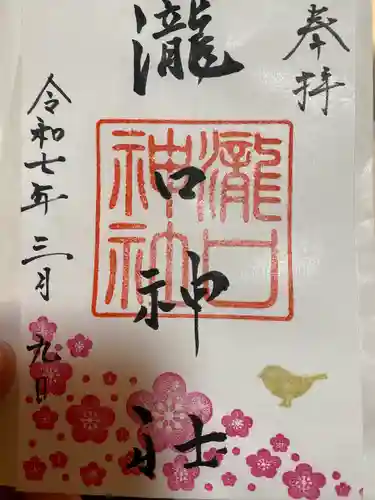 奉拝
瀧口神社
瀧口
神社
令和七年三月九日